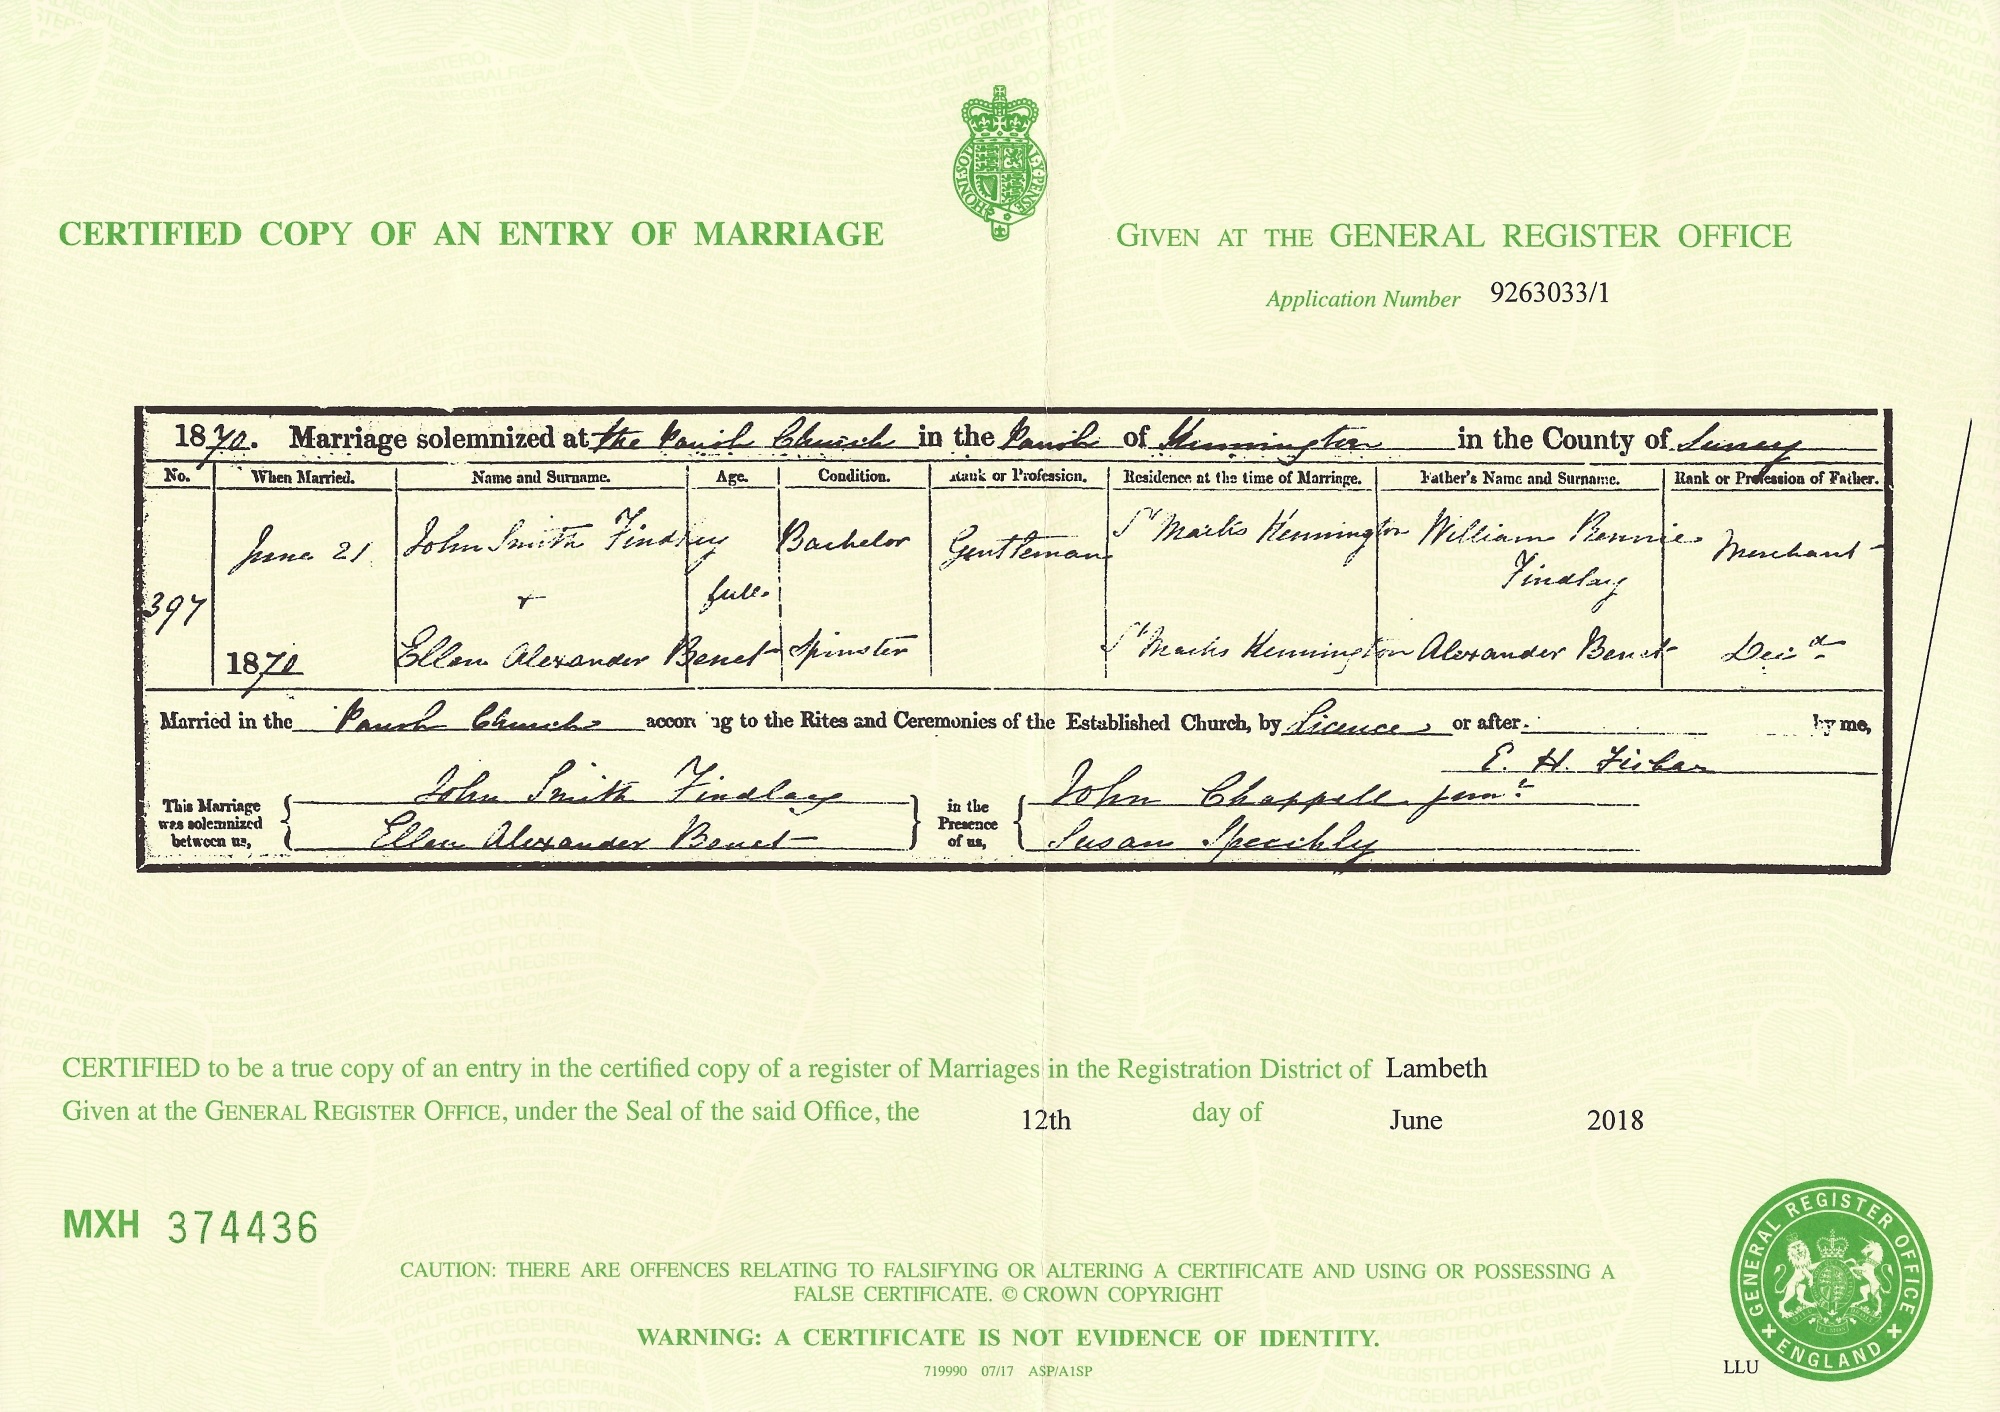 CERTIFIED COPY OF AN ENTRY OF MARRIAGE
GIVEN AT THE GENERAL REGISTER OFFICE
Application Number 9263033/1
1870. Marriage solemnized at the Parish Church in the Parish of Kennington in the County of Surrey
No. When Married. Name and Surname. Age. Condition. Rank or Profession. Residence at the time of Marriage. Father's Name and Surname. Rank or Profession of Father.
397 June 21 1870
John Smith Findlay full. Bachelor Gentleman St Marks Kennington William Rennie Findlay Merchant
+
Ellen Alexander Benet Spinster St Marks Kennington Alexander Benet Decd
Married in the Parish Church according to the Rites and Ceremonies of the Established Church, by Licence or after. by me,
E. H.
This Marriage was solemnized between us, John Smith Findlay
Ellen Alexander Benet
in the Presence of us, John Chappell junr
Susan Speechly
CERTIFIED to be a true copy of an entry in the certified copy of a register of Marriages in the Registration District of Lambeth
Given at the GENERAL REGISTER OFFICE, under the Seal of the said Office, the 12th day of June 2018
MXH 374436
CAUTION: THERE ARE OFFENCES RELATING TO FALSIFYING OR ALTERING A CERTIFICATE AND USING OR POSSESSING A
FALSE CERTIFICATE. © CROWN COPYRIGHT
WARNING: A CERTIFICATE IS NOT EVIDENCE OF IDENTITY.
719990 07/17 ASP/A1SP
LLU
GENERAL REGISTER OFFICE
ENGLAND